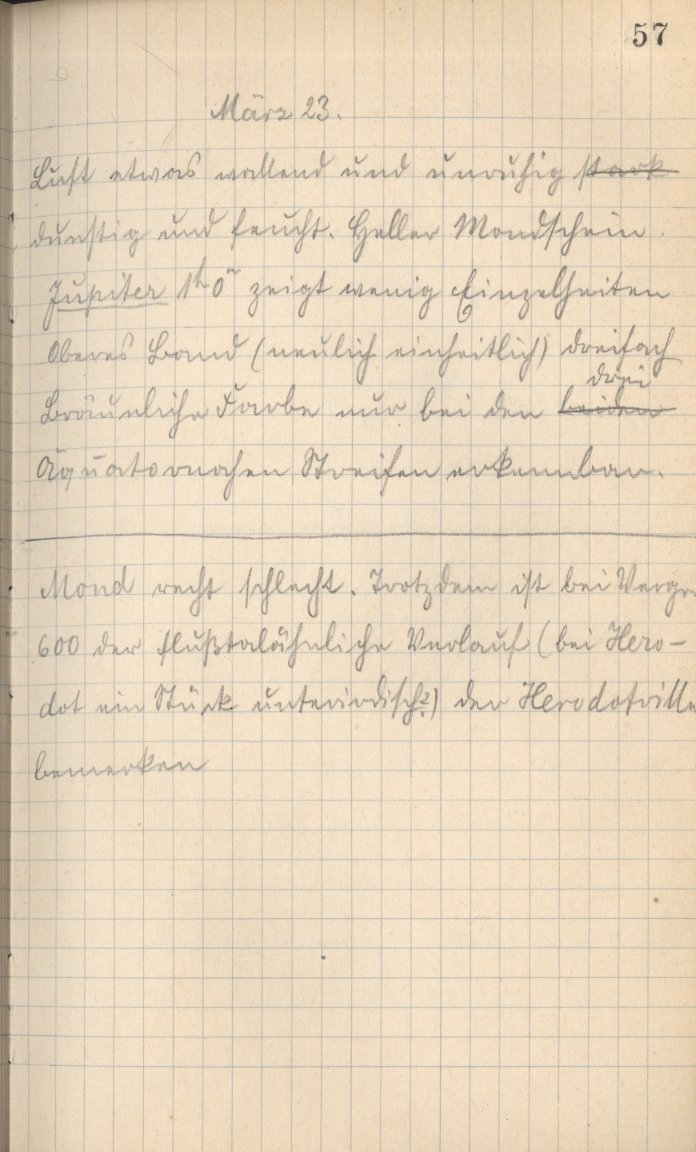 57
März 23.
Luft etwas wallend und unruhig stark
dunstig und feucht. Heller Mondschein.
Jupiter 1h 0m zeigt wenig Einzelheiten
Oberes Band (neulich einheitlich) dreifach
drei
Bräunliche Farbe nur bei den beiden
Äquatornahen Streifen erkennbar.
Mond recht schlecht. Trotzdem ist bei Vergr
600 der flußtalähnliche Verlauf (bei Hero-
dot ein Stück unterirdisch?) der Herodotrille
bemerken